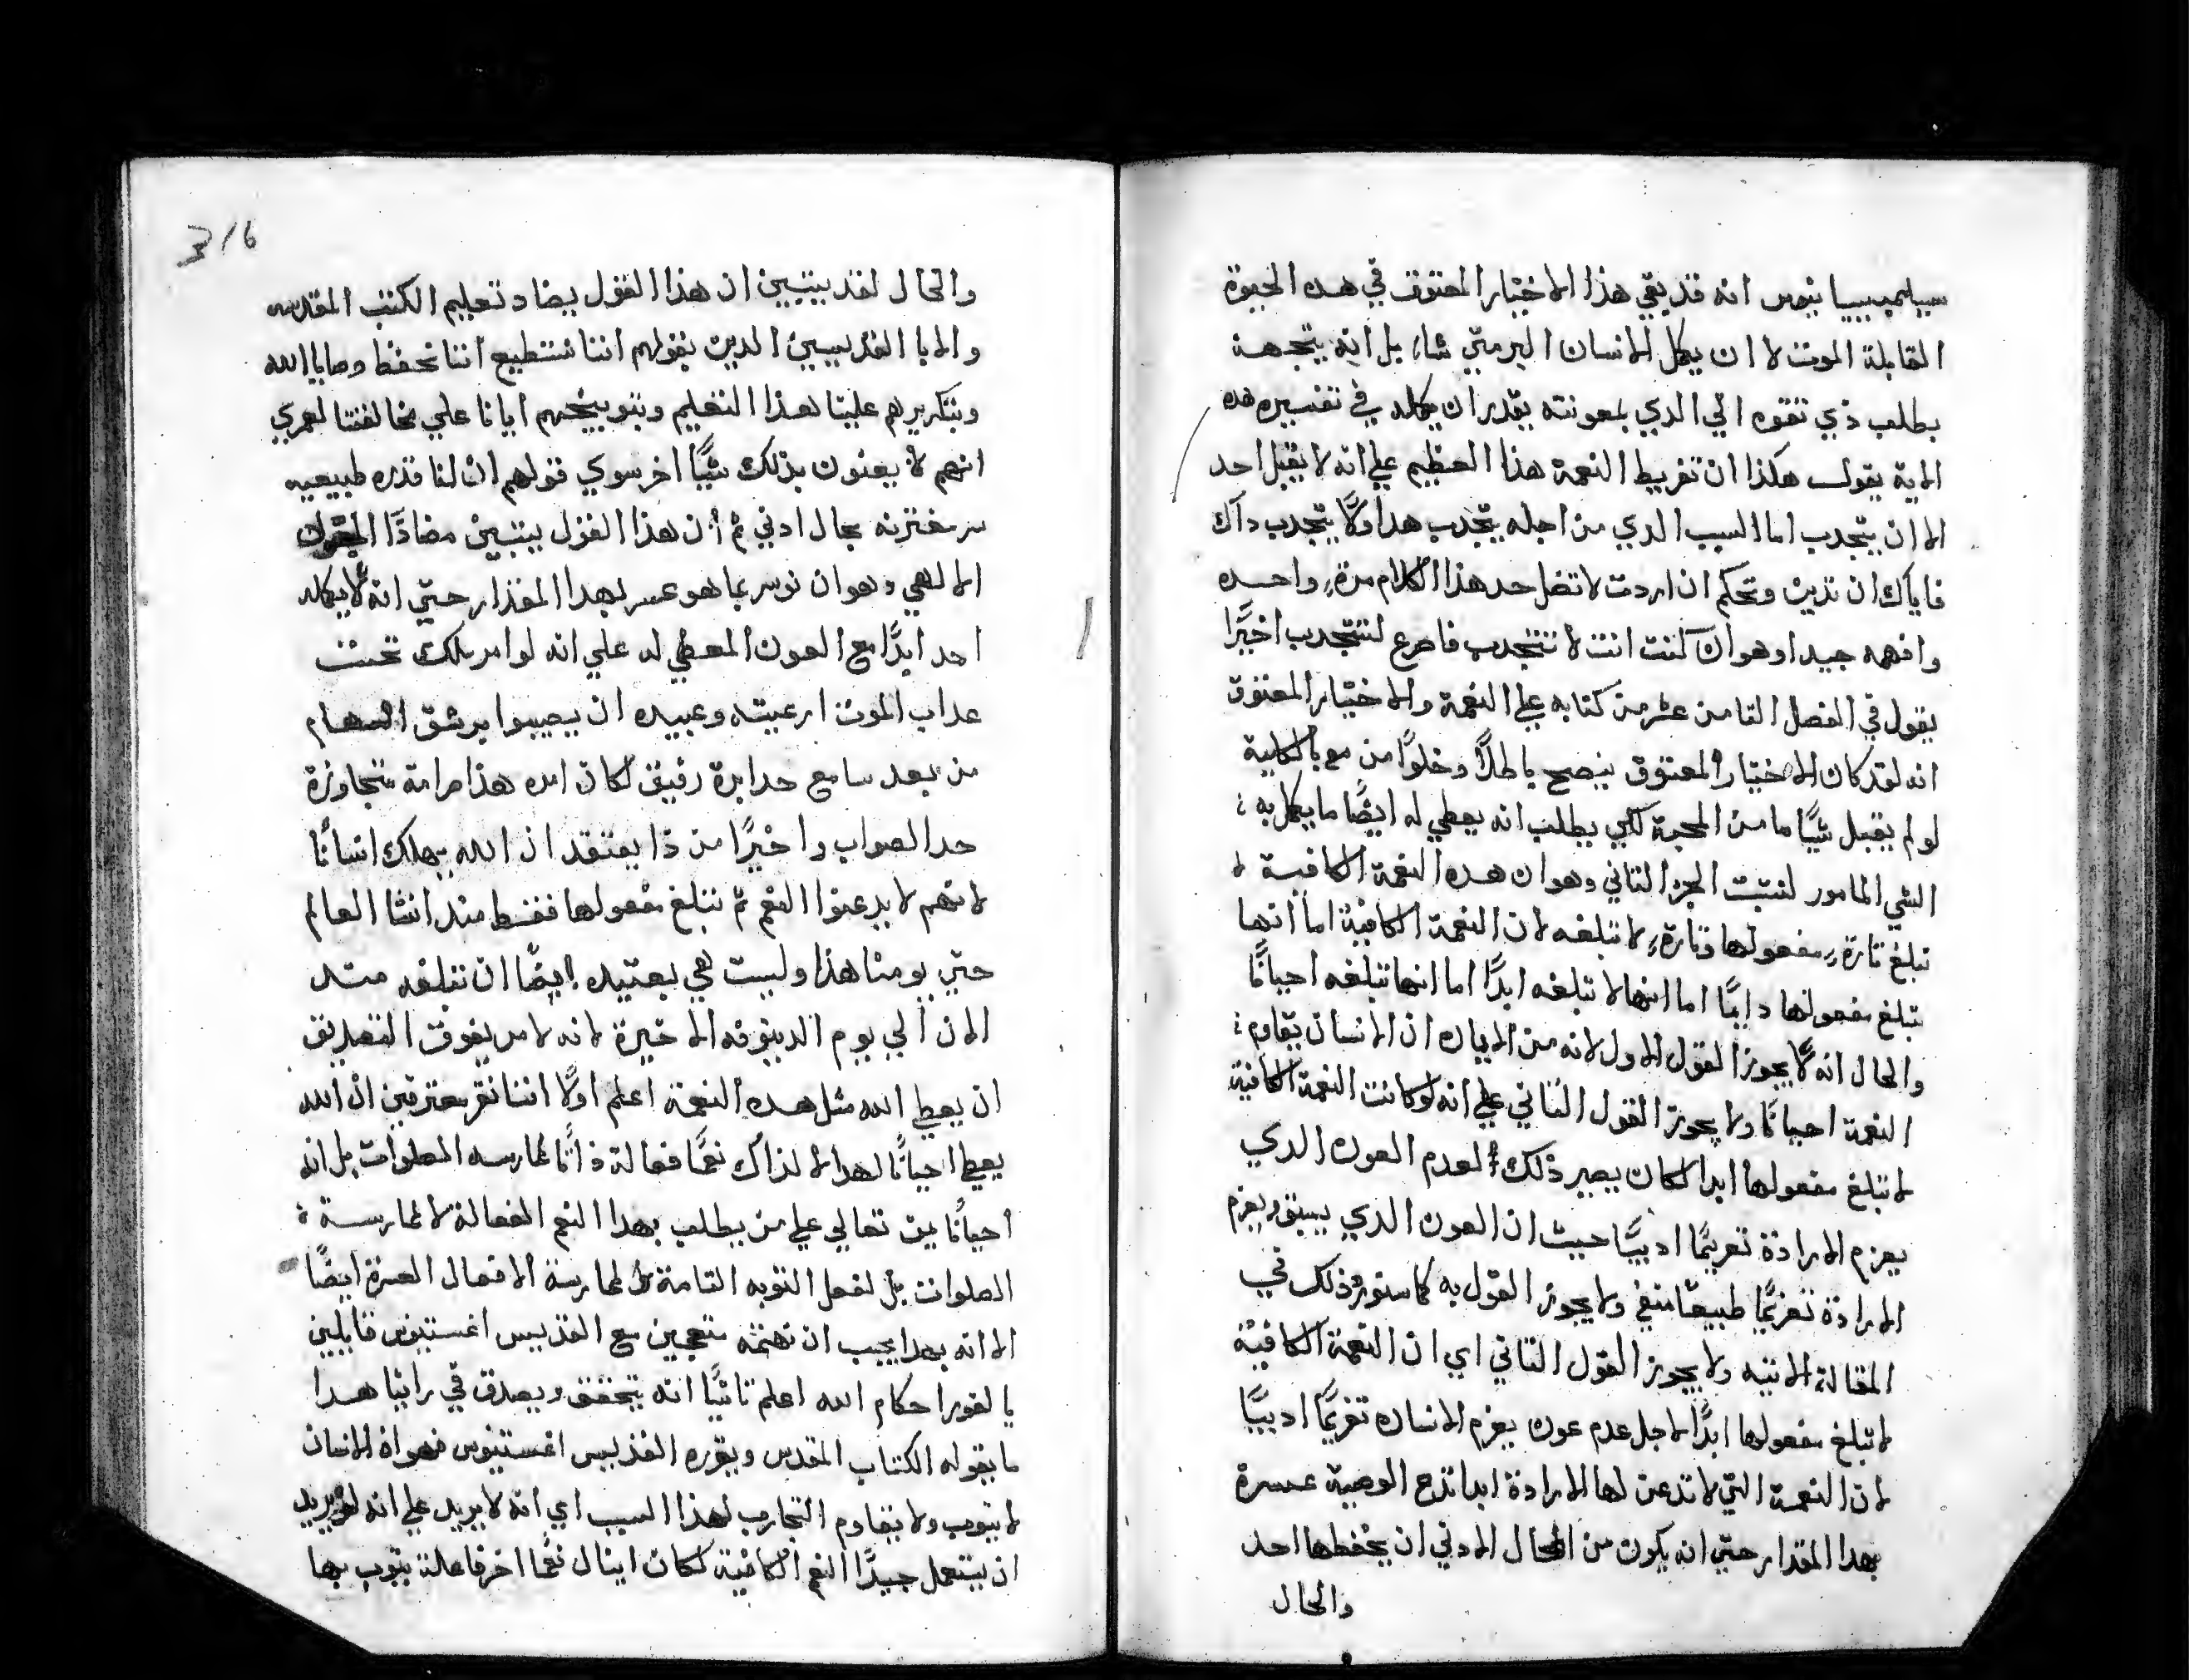 سيليمبيسيا نيوس انه قد يقي هذا الاختيار المعتوق في هده الحيوة
القابلة الموت لا ان يكمل الانسان البر متي شاء بل انه يتجه
بطلب ذي تقوه الي الدي بمعونته يقدر ان يكمله في تفسيره هده
الاية يقول هكذا ان تفريط النعمة هذا العظيم علي انه لا يقبل احد
الا ان يتجدب اما السبب الدي من اجله يتجدب هدا ولا يتجدب داك
فاياك ان تدين وتحكم ان اردت لا تضل خد هذا الكلام مرة واحده
وافهمه جيدا وهو ان كنت انت لا تنجدب فاضرع لتنجدب اخيرًا
يقول في الفصل الثامن عشر من كتابه علي النعمة والاختيار المعتوق
انه لقد كان الاختيار المعتوق ينصح باطلاً وخلوًا من بالكلية
لو لم يقبل شيًا ما من المحبة لكي يطلب انه يعطي له ايضًا ما يكمل به
الشي المامور لنتبت الجز التاني وهو ان هده النعمة الكافية لا
تبلغ تارةً مفعولها وتارةً لا تبلغه لان النعمة الكافية اما انها
تبلغ مفعولها دايمًا اما انها لا تبلغه ابدًا اما انها تبلغه احيانًا
والحال انه لا يجوز القول الاول لانه من البيان ان الانسان يقاوم
النعمة احيانًا ولا يجوز القول الثاني علي انه لو كانت النعمة الكافية
لا تبلغ مفعولها ابدا لكان يصير ذلك لعدم العون الدي
يعزم الارادة تعزيمًا ادبيًا حيث ان العون الدي يسبق ويعزم
الارادة تعزيمًا طبيعيًا منفي ولا يجوز القول به كما سنورد ذلك في
المقالة الاتيه ولا يجوز القول التاني اي ان النعمة الكافية
لا تبلغ مفعولها ابدًا لاجل عدم عون يعزم الانسان تعزيمًا ادبيًا
لان النعمة التي لا تدعن لها الارادة ابدا تدع الوصية عسرة
بهدا المقدار حتي انه يكون من المحال الادني ان يحفظها احد
والحال
316
والحال لقد يتبين ان هذا القول يضاد تعليم الكتب المقدسه
والابا القديسين الدين بقولهم اننا نستطيع اننا نحفظ وصايا الله
وبتكريرهم علينا هذا التعليم وبتوبيخهم ايانا علي مخالفتنا لعمري
انهم لا يعنون بذلك شيًا اخر سوي قولهم ان لنا قدره طبيعيه
مقترنه بحال ادني ثم ان هذا القول يتبين مضادًا
الالهي وهو ان نوسر بما هو عسر بهدا المقدار حتي انه لا يكمله
احد ابدًا مع العون المعطي له علي انه لو امر ملك تحت
عداب الموت رعيته وعبيده ان يصيبوا برشق السهام
من بعد سامع حد ابرة رقيق لكان امره هذا صرامة متجاوزة
حد الصواب واخيرًا من ذا يعتقد ان الله يهلك انسانًا
لانهم لا يدعنوا النعم لم تبلغ مفعولها فقط مند انشا العالم
حتي يومنا هذا وليست هي بعتيده ايضًا ان تبلغه مند
الان الي يوم الدينونه الاخيرة لانه لامر يفوق التصديق
ان يعطي الله مثل هده النعمة اعلم اولًا اننا نقر معترفين ان الله
يعطي احيانًا لهدا لا لذاك نعمًا فعالة ذاتًا لممارسه الصلوات بل انه
احيانًا يمن تعالي علي من يطلب بهدا النعم الفعالة لا لممارسة
الصلوات بل لفعل التوبه التامة لممارسة الافعال العسرة ايضًا
الا انه بهدا يجب ان نهتف متعجبين مع القديس اغستينوس قايلين
يا لغور احكام الله اعلم تانيًا انه يتحقق ويصدق في راينا هدا
ما يقوله الكتاب المقدس ويقرره القديس اغستينوس فهو ان الانسان
لا يتوب ولا يقاوم التجارب لهذا السبب اي انه لا يريد علي انه لو يريد
ان يستعمل جيدًا النعم الكافية لكان اينال نعمًا اخر فاعلة يتوب بها